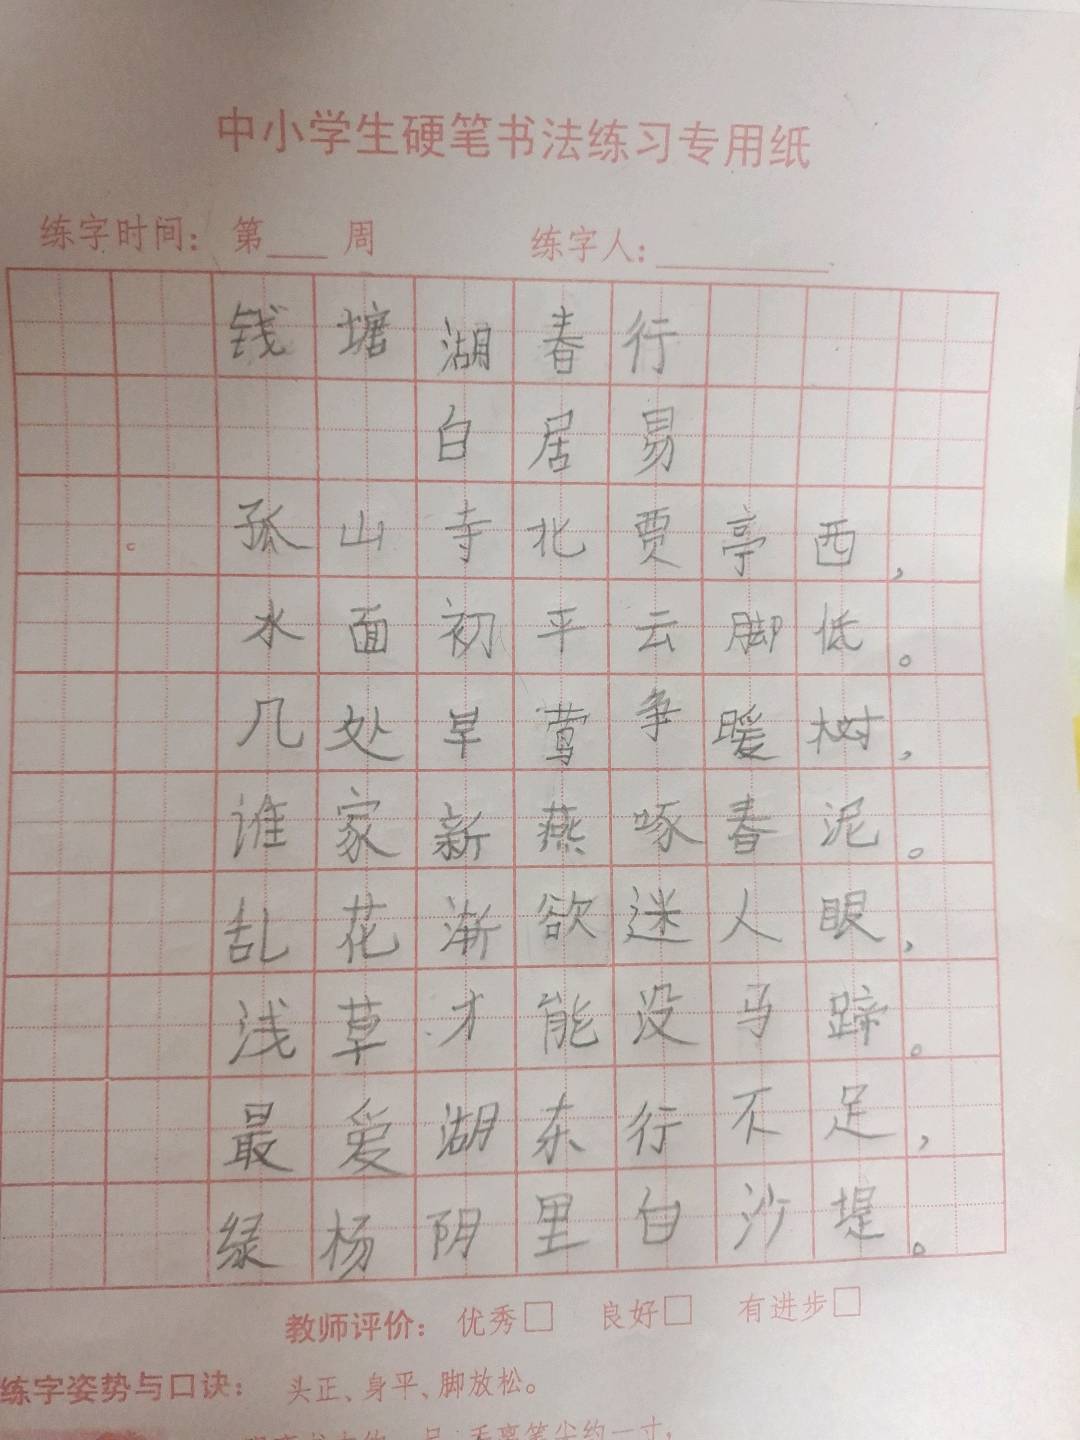 中小学生硬笔书法练习专用纸
练字时间：第___周 练字人：________
钱塘湖春行
白居易
孤山寺北贾亭西，
水面初平云脚低。
几处早莺争暖树，
谁家新燕啄春泥。
乱花渐欲迷人眼，
浅草才能没马蹄。
最爱湖东行不足，
绿杨阴里白沙堤。
教师评价：优秀□ 良好□ 有进步□
练字姿势与口诀：头正、身平、脚放松。